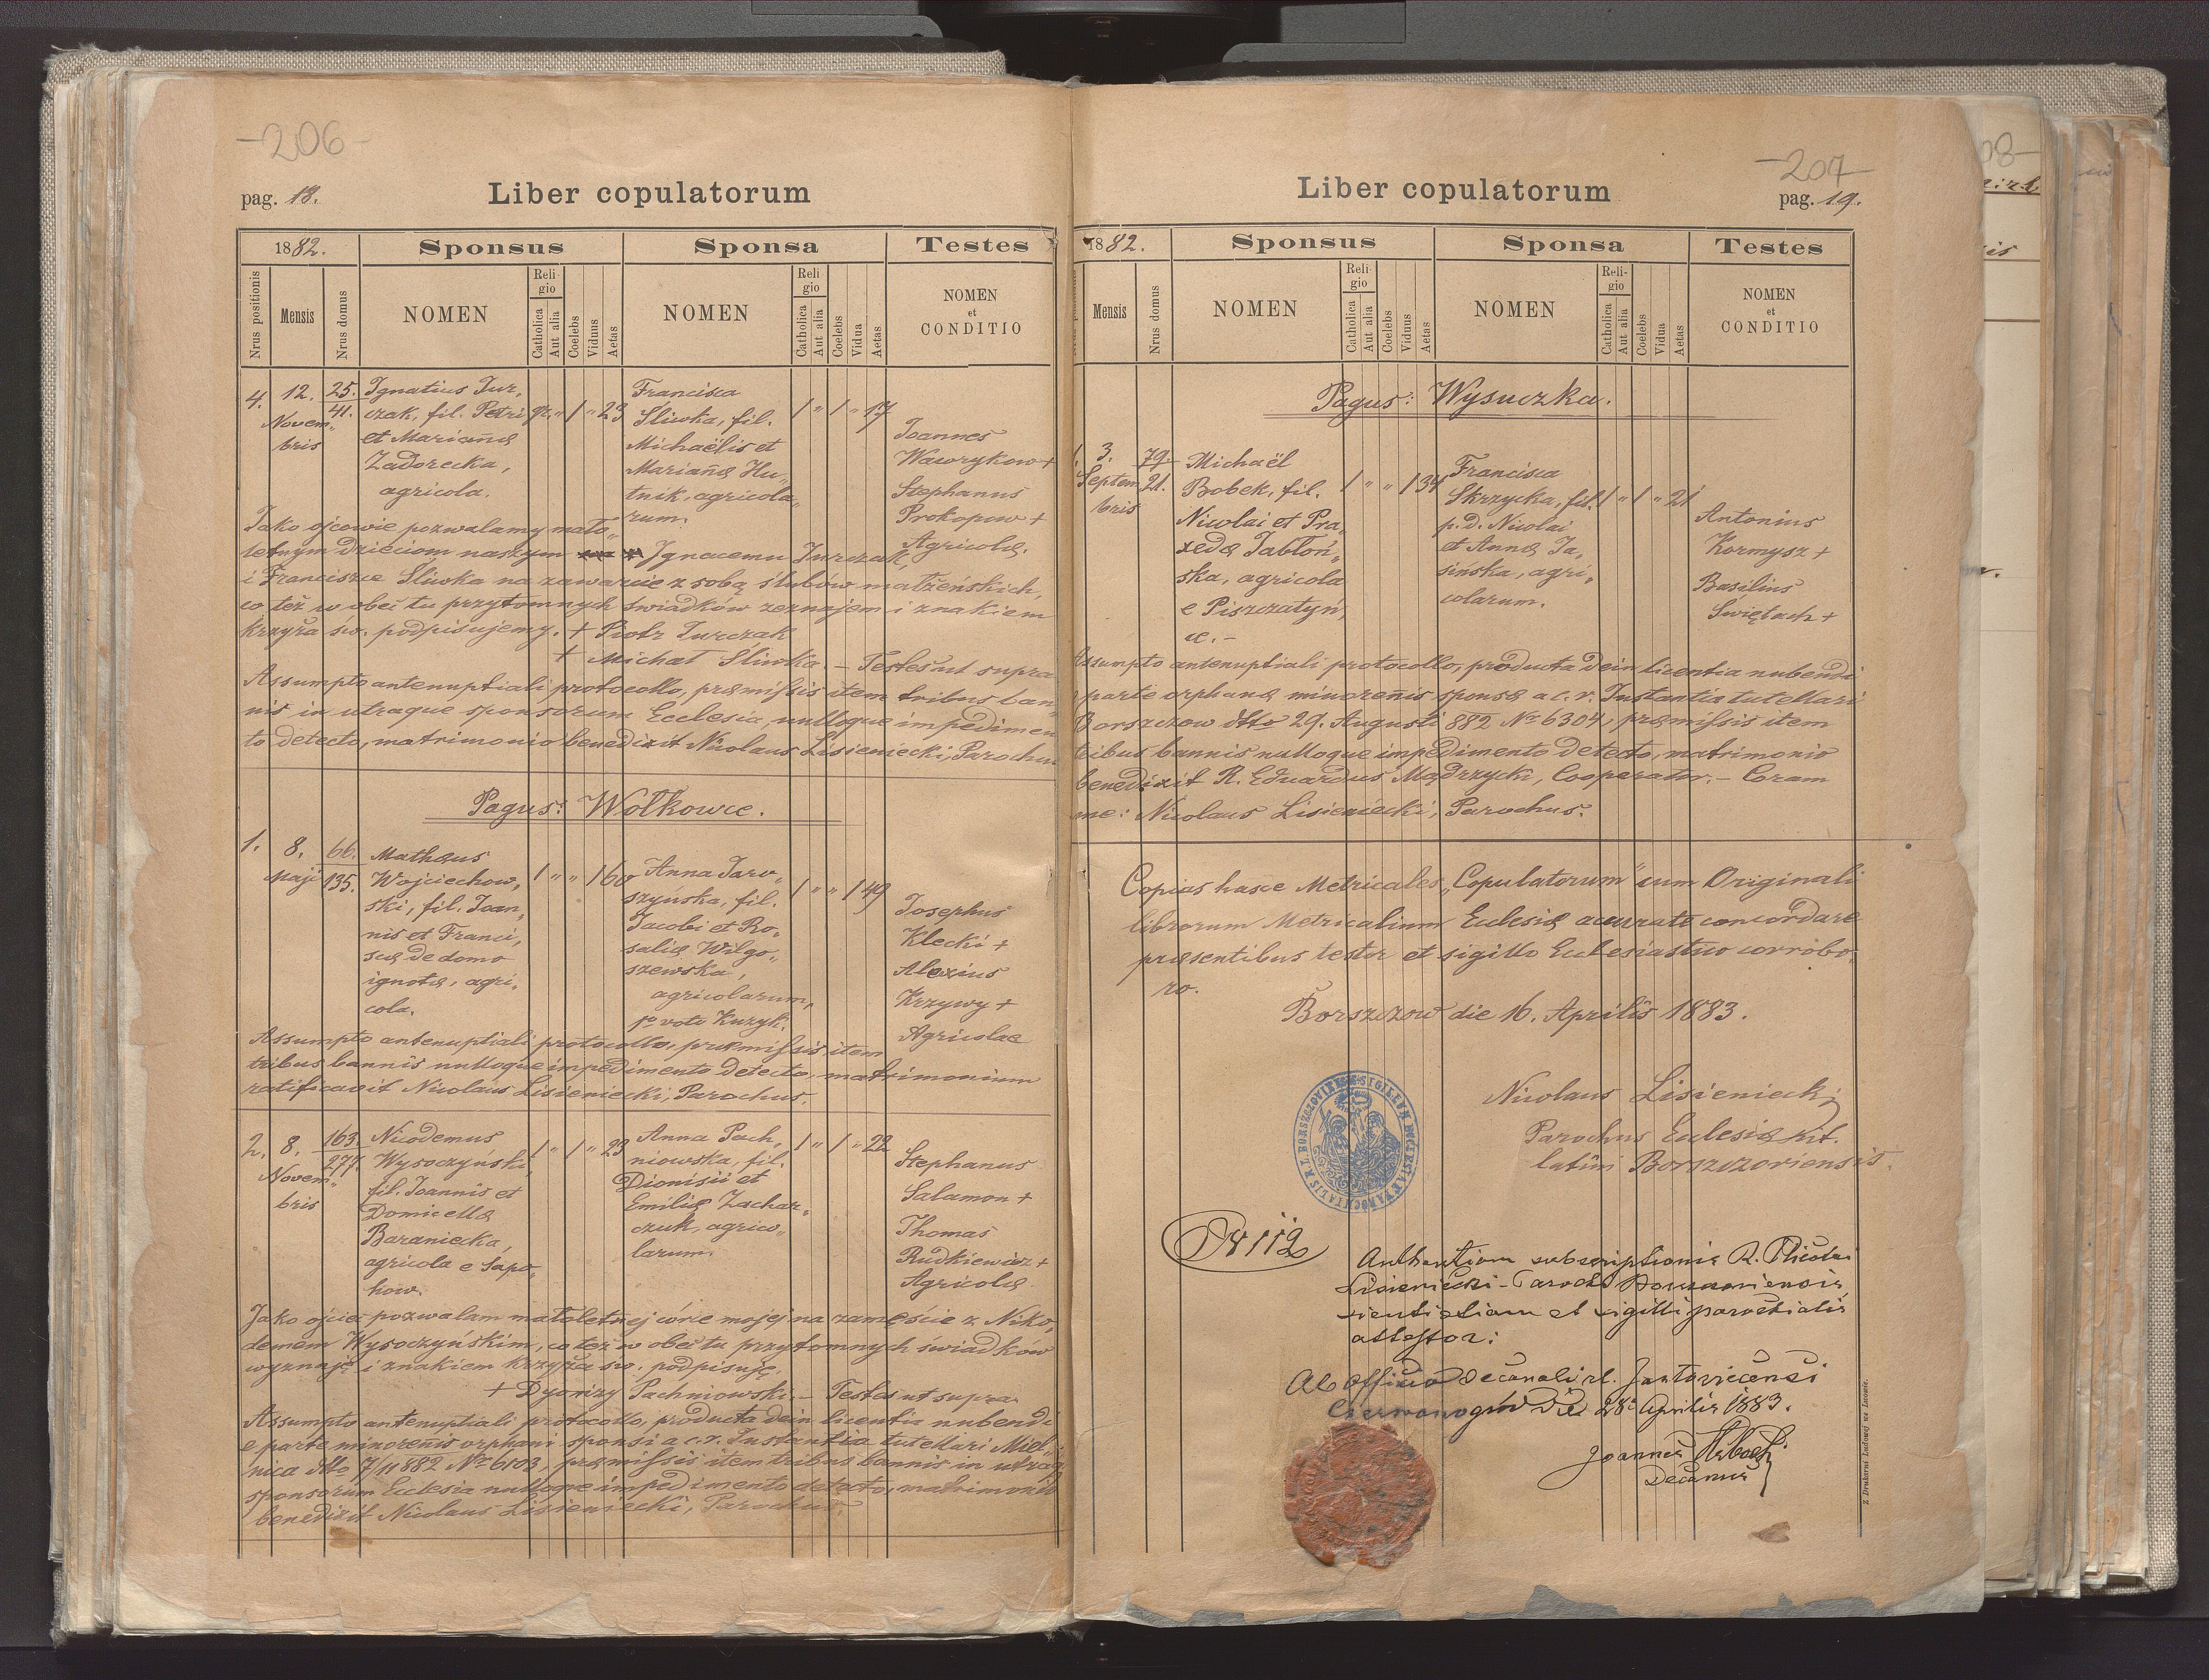 -206-
pag. 18.
Liber copulatorum
1882.
Sponsus
Sponsa
Testes
Nrus positionis
Mensis
Nrus domus
NOMEN
Religio
Catholica
Aut alia
Coelebs
Viduus
Aetas
NOMEN
Religio
Catholica
Aut alia
Coelebs
Vidua
Aetas
NOMEN
et
CONDITIO
4.
12.
Novem„
bris
25.
41.
Ignatius Jur„
czak, fil. Petri
et Marianæ
Zadorecka,
agricola.
gr. „ 1 „ 23
Francisca
Śliwka, fil.
Michaëlis et
Marianæ Hu„
tnik, agricola„
rum.
1 „ 1 „ 17
Joannes
Wawrykow +
Stephanus
Prokopow +
Agricolæ.
Jako ojcowie pozwalamy mało„
letnym dzieciom naszym Ignacemu Jurczak,
i Franciszce Śliwka na zawarcie z sobą ślubów małżeńskich,
co też w obec tu przytomnych świadków zeznajem i znakiem
krzyża św. podpisujemy. + Piotr Jurczak
+ Michał Śliwka. – Testes ut supra
Assumpto antenuptiali protocollo, præmissis item tribus ban„
nis in utraque sponsorum Ecclesia, nulloque impedimen
to detecto, matrimonio benedixit Nicolaus Lisieniecki, Parochus
Pagus: Wołkowce.
1.
8.
Maji
66.
135.
Mathæus
Wojciechow„
ski, fil. Joan„
nis et Franci„
scæ de domo
ignotæ, agri„
cola.
1 „ „ 1 60
Anna Jaro„
szyńska, fil.
Jacobi et Ro„
saliæ Wilgo„
szewska,
agricolarum,
1º voto Kuzyk.
1 „ „ 1 49
Josephus
Klecki +
Alexius
Krzywy +
Agricolae
Assumpto antenuptiali protocollo, præmissis item
tribus bannis nulloque impedimento detecto, matrimonium
ratificavit Nicolaus Lisieniecki, Parochus.
2.
8.
Novem„
bris
163.
277.
Nicodemus
Wysoczyński,
fil. Joannis et
Domicellæ
Baraniecka,
agricola e Sapo„
how.
1 „ 1 „ 23
Anna Pach„
niowska, fil.
Dionisii et
Emiliæ Zachar„
czuk, agrico„
larum.
1 „ 1 „ 22
Stephanus
Salamon +
Thomas
Rudkiewicz +
Agricolæ
Jako ojciec pozwalam małoletnej córce mojej na zamęście z Niko„
demem Wysoczyńskim, co też w obec tu przytomnych świadków
wyznaję i znakiem krzyża św. podpisuję.
+ Dyonizy Pachniowski. – Testes ut supra
Assumpto antenuptiali protocollo, producta dein licentia nubendi
e parte minorenis orphani sponsi a c. r. Instantia tutellari Miel„
nica dtto 7/11 882 Nº 6103, præmissis item tribus bannis in utraq
sponsorum Ecclesia nulloque impedimento detecto, matrimonio
benedixit Nicolaus Lisieniecki, Parochus.
-207-
Liber copulatorum
pag. 19.
1882.
Sponsus
Sponsa
Testes
Mensis
Nrus domus
NOMEN
Religio
Catholica
Aut alia
Coelebs
Viduus
Aetas
NOMEN
Religio
Catholica
Aut alia
Coelebs
Vidua
Aetas
NOMEN
et
CONDITIO
Pagus: Wysuczka.
1.
3.
Septem
bris
79.
21.
Michaël
Bobek, fil.
Nicolai et Pra„
xedæ Jabłoń„
ska, agricola
e Piszczatyń„
ce. –
1 „ „ 1 34
Francisca
Skrzycka, fil.
p. d. Nicolai
et Annæ Ja„
sińska, agri„
colarum.
1 „ 1 „ 21
Antonius
Kormysz +
Basilius
Święłach +
Assumpto antenuptiali protocollo, producta dein licentia nubendi
e parte orphanæ minorenis sponsæ a c. r. Instantia tutellari
Borszczow dtto 29. Augusti 882 Nº 6304, præmissis item
tribus bannis nulloque impedimento detecto, matrimonio
benedixit R. Eduardus Mądrzycki, Cooperator. – Coram
me: Nicolaus Lisieniecki, Parochus.
Copias hasce Metricales „Copulatorum" cum Originali
librorum Metricalium Ecclesiæ accurate concordare
præsentibus testor et sigillo Ecclesiastico corrobo„
ro.
Borszczow die 16. Aprilis 1883.
Nicolaus Lisieniecki
Parochus Ecclesiæ rit.
latini Borszczoviensis.
Nr 112
Authentiam subscriptionis R. Nicolai
Lisieniecki - Parochi Borszczoviensis
sicuti etiam et sigilli parochialis
attestor:
Ab Officio Decanali r. l. Jazłoviecensi
Czerwonogród Die 28 Aprilis 1883.
Joannes
Decanus
Z Drukarni Ludowej we Lwowie.